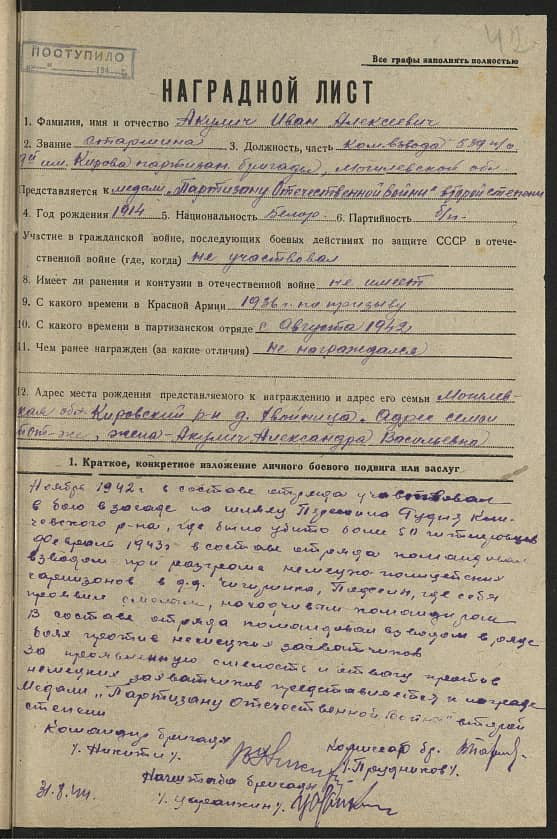 42.
ПОСТУПИЛО
194 г.
Все графы заполнять полностью
НАГРАДНОЙ ЛИСТ
1. Фамилия, имя и отчество Акулич Иван Алексеевич
2. Звание старшина 3. Должность, часть ком. взвода 539 п/о
им. Кирова партизан. бригады, Могилевской обл
Представляется к медали „Партизану Отечественной войны" второй степени
4. Год рождения 1914 5. Национальность Белор. 6. Партийность б/п-
Участие в гражданской войне, последующих боевых действиях по защите СССР в отече-
ственной войне (где, когда) не участвовал
8. Имеет ли ранения и контузии в отечественной войне не имеет
9. С какого времени в Красной Армии 1936 г. по призыву
10. С какого времени в партизанском отряде с Августа 1942г
11. Чем ранее награжден (за какие отличия) не награждался
12. Адрес места рождения представляемого к награждению и адрес его семьи Могилев-
кая обл Кировский р-н д. Адрес семьи
тот-же, жена-Акулич Александра Васильевна
1. Краткое, конкретное изложение личного боевого подвига или заслуг
Ноября 1942 г в составе отряда участвовал
в бою в засаде на шляху
р-на, где было убито боли 50 гитлеровцев
Февраль 1943 г в составе отряда командовал
взводом при разгроме немецко-полицейских
гарнизонов в д.д. Чигиринка, где себя
проявил смелым, находчивым командиром
В составе отряда командовал взводом в ряде
боях против немецких захватчиков
За проявленную смелость и отвагу против
немецких захватчиков представляется к награде
Медали „Партизану Отечественной Войны" второй
степени
Командир бригады Комиссар бр.
/. Никитин /. /. Прудников /.
Нач штаба бригады
31.8.44.